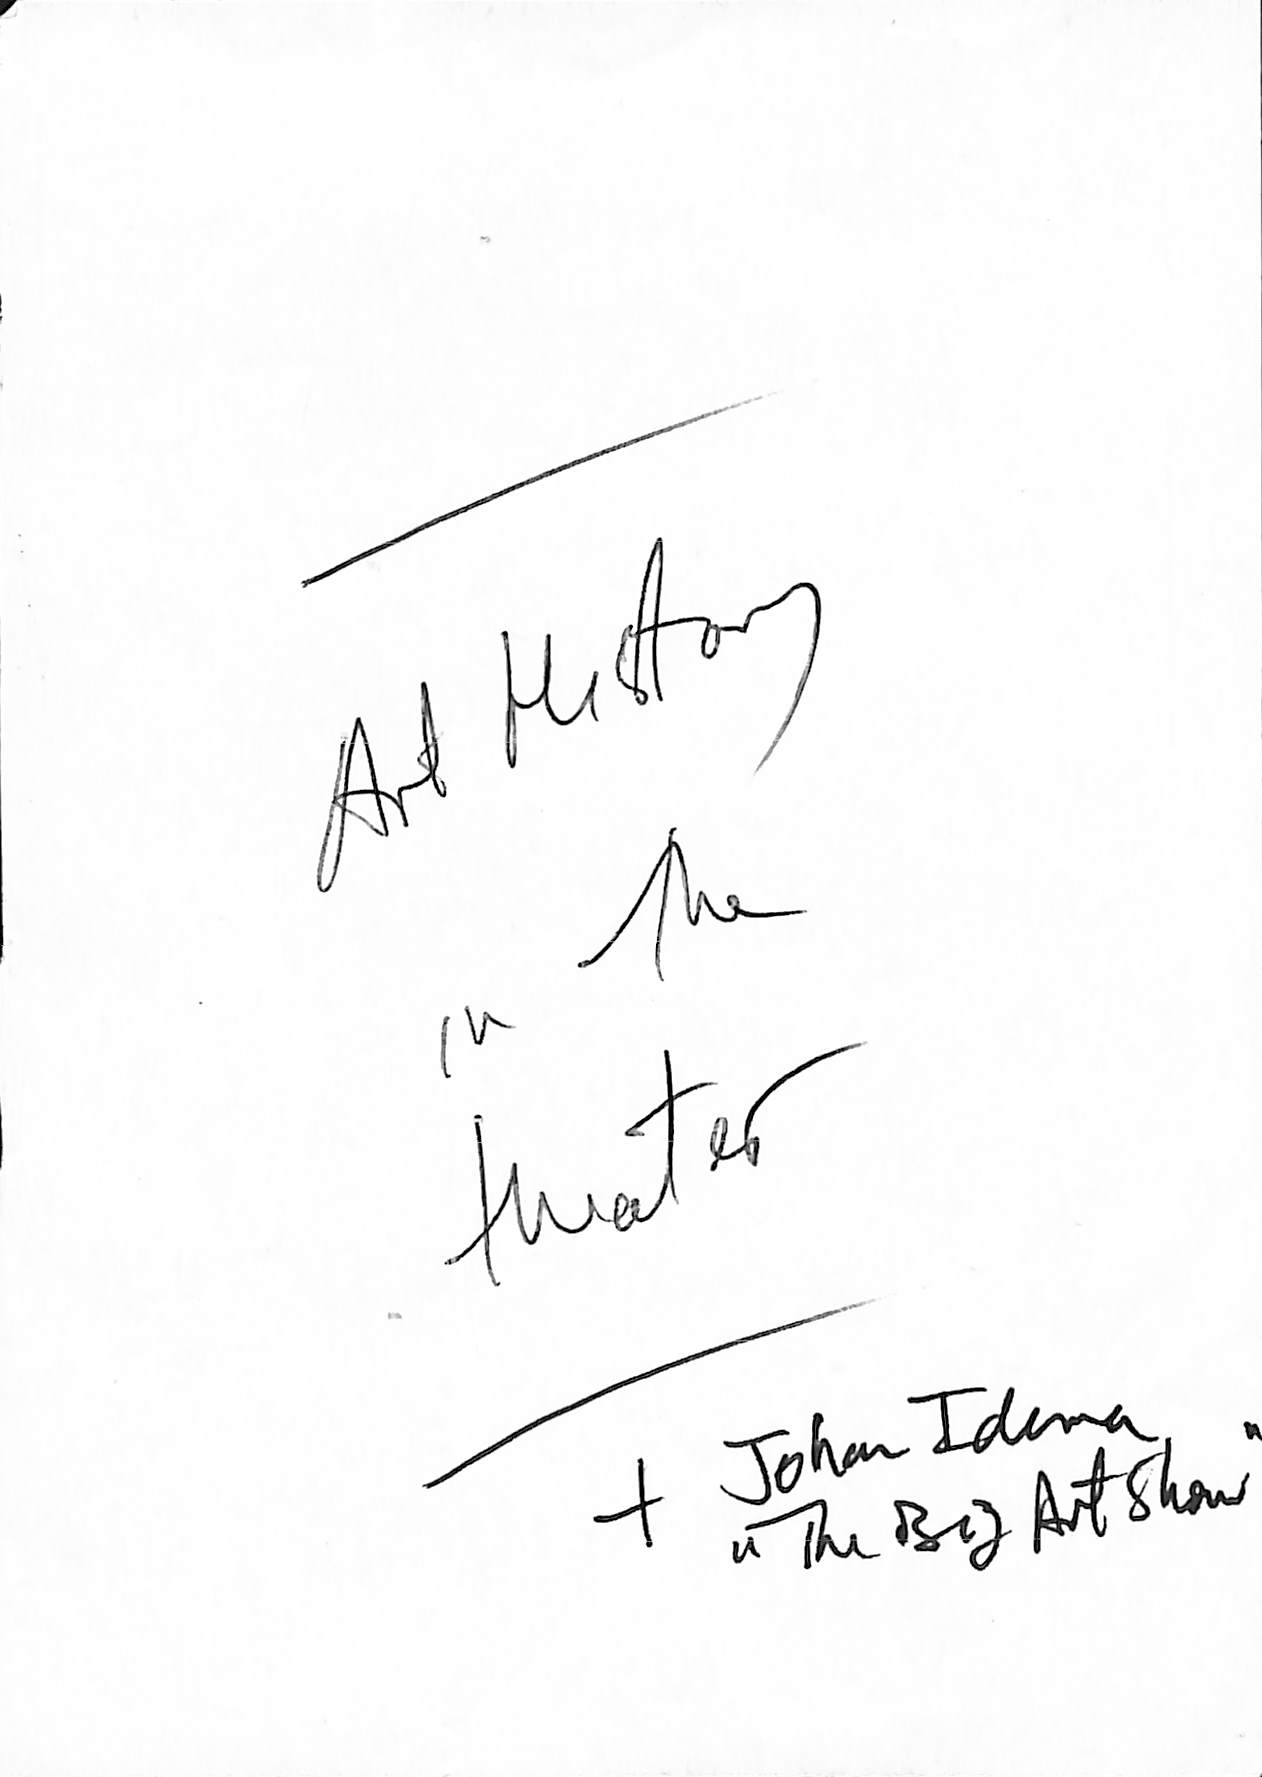 Art History
in the
theater
+ Johan Idema
"The Big Art Show"